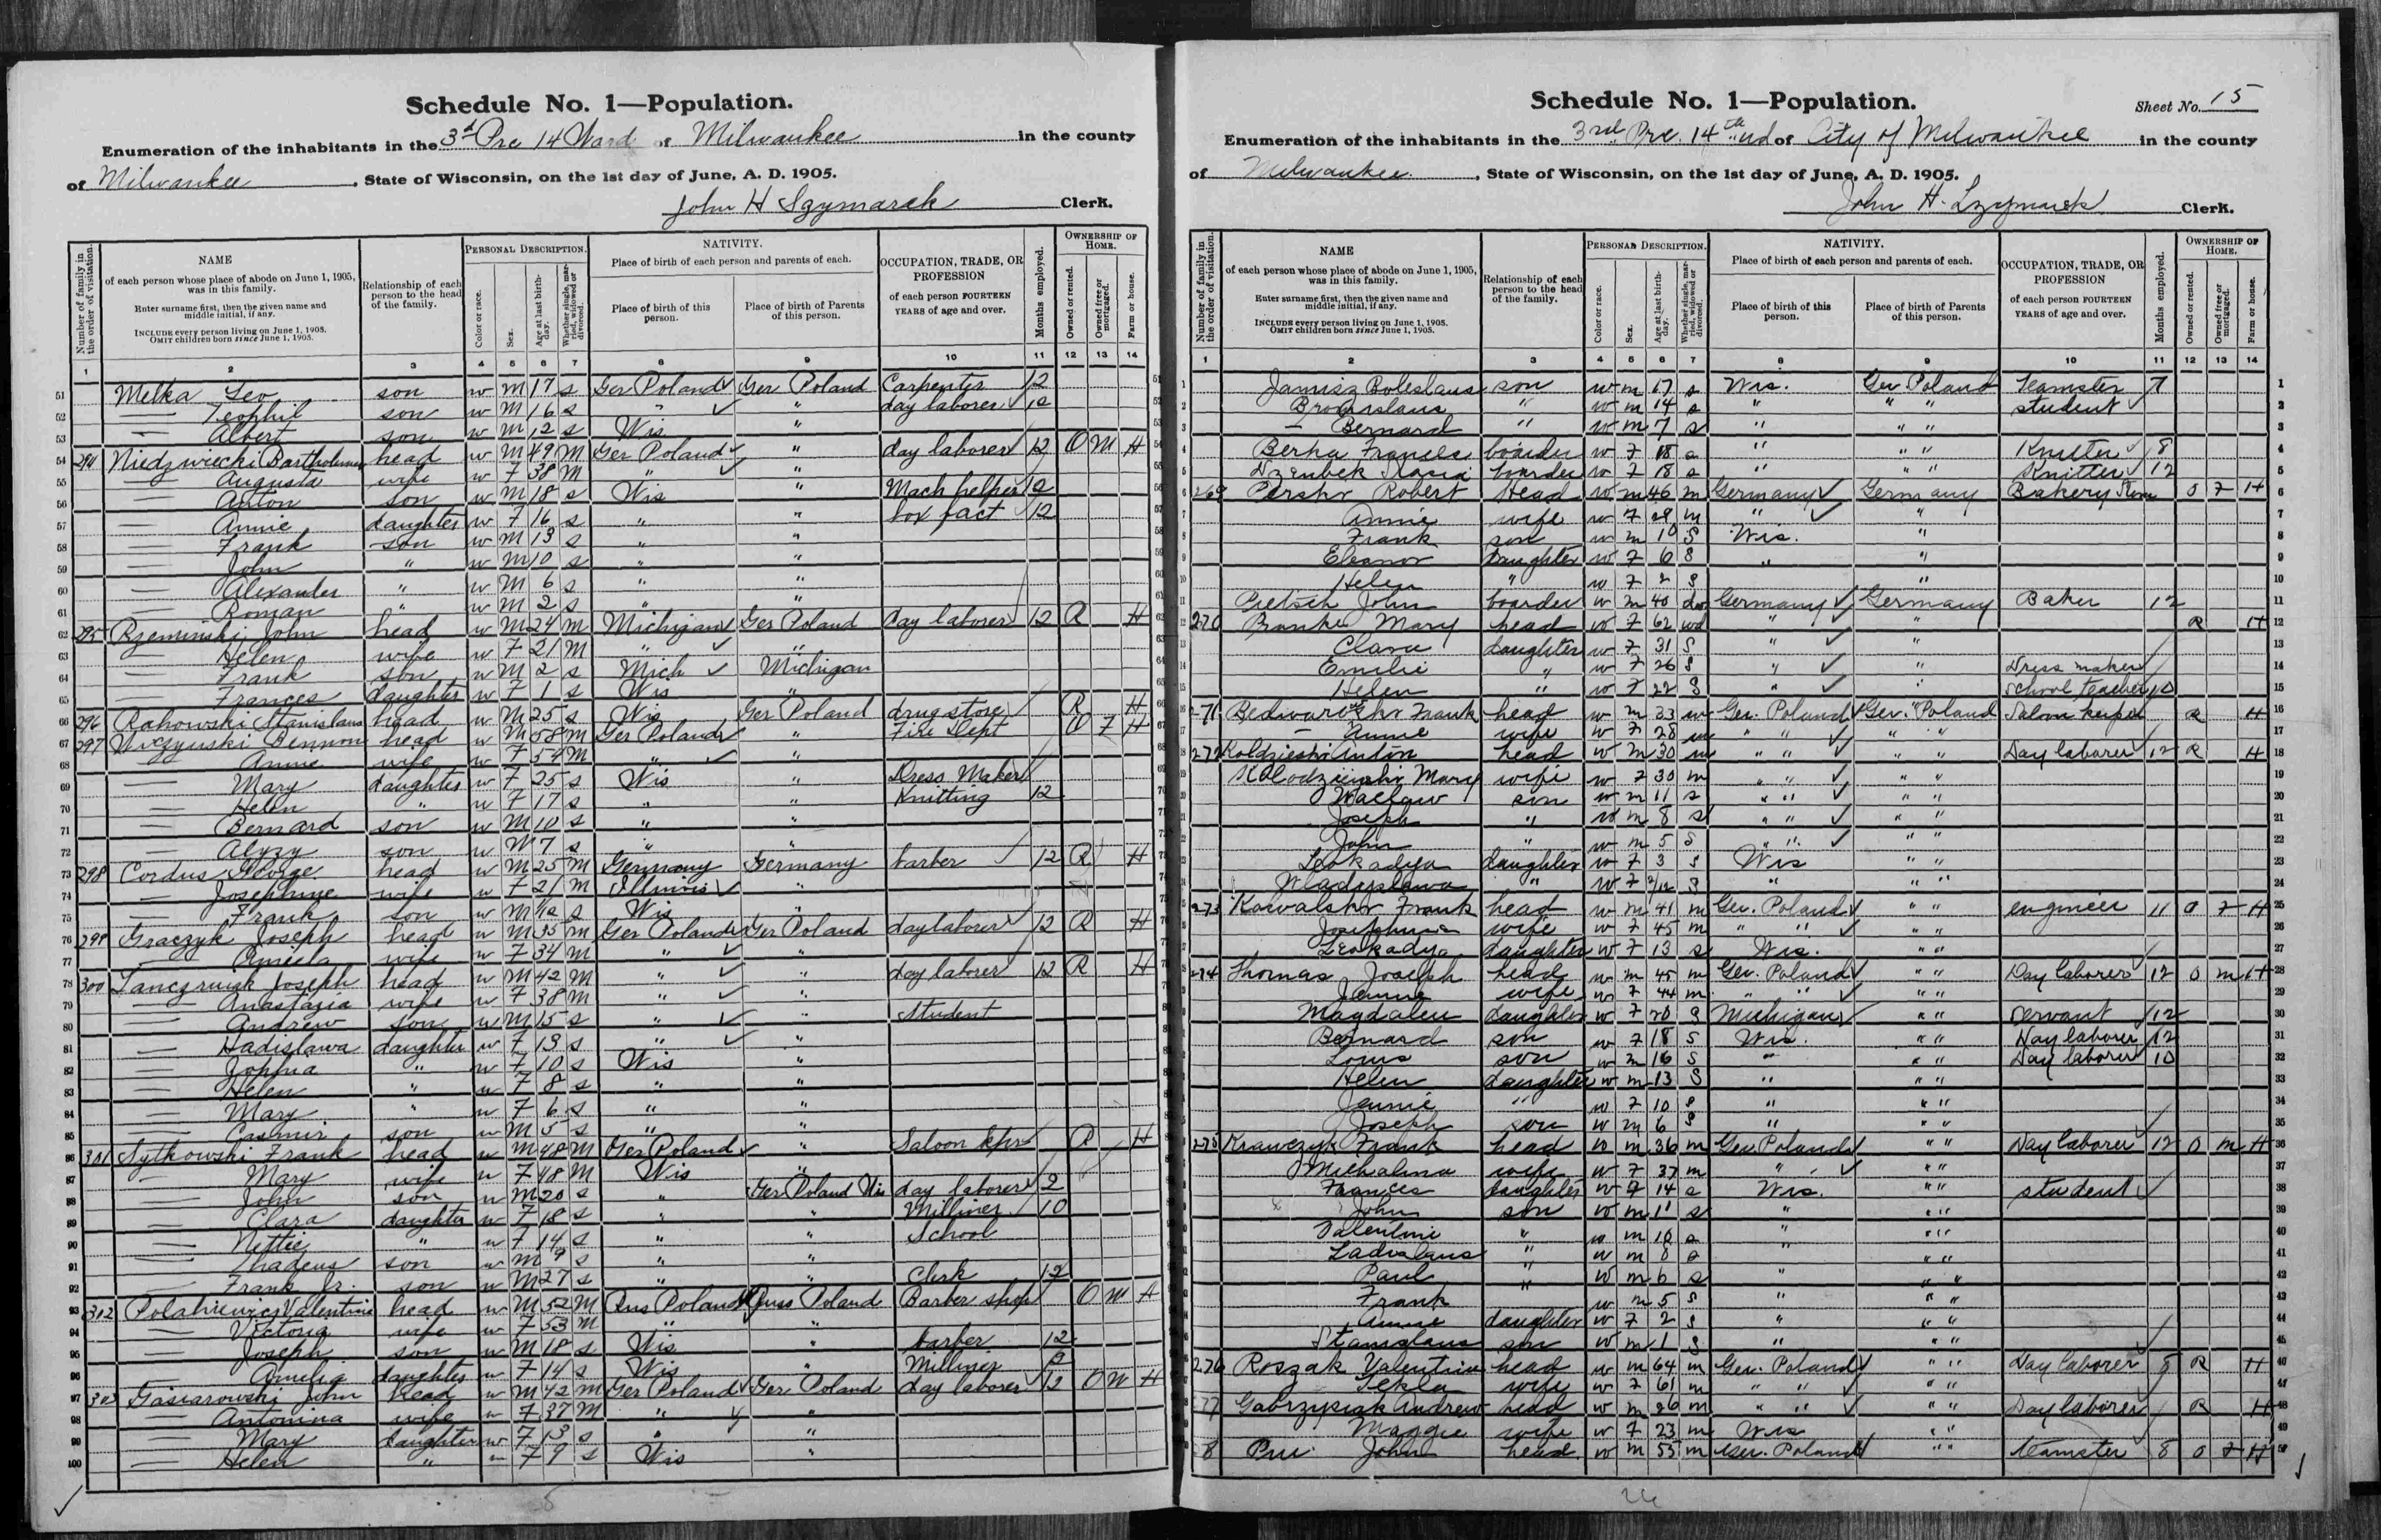 Schedule No. 1—Population.
Enumeration of the inhabitants in the 3d Pre 14 Ward of Milwaukee in the county
of Milwaukee, State of Wisconsin, on the 1st day of June, A. D. 1905.
John H Szymarek Clerk.
Number of family in the order of visitation.
NAME
of each person whose place of abode on June 1, 1905, was in this family.
Enter surname first, then the given name and middle initial, if any.
INCLUDE every person living on June 1, 1905.
OMIT children born since June 1, 1905.
Relationship of each person to the head of the family.
PERSONAL DESCRIPTION.
Color or race.
Sex.
Age at last birthday.
Whether single, married, widowed or divorced.
NATIVITY.
Place of birth of each person and parents of each.
Place of birth of this person.
Place of birth of Parents of this person.
OCCUPATION, TRADE, OR PROFESSION
of each person FOURTEEN YEARS of age and over.
Months employed.
OWNERSHIP OF HOME.
Owned or rented.
Owned free or mortgaged.
Farm or house.
1 2 3 4 5 6 7 8 9 10 11 12 13 14
51 Melka Leo son w M 17 s Ger Poland Ger Poland Carpenter 12
52 — Teophil son w M 16 s " " day laborer 12
53 — Albert son w M 12 s Wis "
54 294 Niedzwiecki Bartholomew head w M 49 M Ger Poland " day laborer 12 O M H
55 — Augusta wife w F 38 M " "
56 — Anton son w M 18 s Wis " Mach helper 12
57 — Annie daughter w F 16 s " " box fact 12
58 — Frank son w M 13 s " "
59 — John " w M 10 s " "
60 — Alexander " w M 6 s " "
61 — Roman " w M 2 s " "
62 295 Rzeminski John head w M 24 M Michigan Ger Poland day laborer 12 R H
63 — Helen wife w F 21 M " "
64 — Frank son w M 2 s Mich Michigan
65 — Frances daughter w F 1 s Wis "
66 296 Rakowski Stanislaus head w M 25 s Wis Ger Poland drug store R H
67 297 Bennon head w M 58 M Ger Poland " Fire Dept O F H
68 — Annie wife w F 54 M " "
69 — Mary daughter w F 25 s Wis " Dress Maker
70 — Helen " w F 17 s " " Knitting 12
71 — Bernard son w M 10 s " "
72 — Alyzy son w M 7 s " "
73 298 Cordus George head w M 25 M Germany Germany barber 12 R H
74 — Josephine wife w F 21 M Illinois "
75 — Frank son w M s Wis "
76 299 Graczyk Joseph head w M 35 m Ger Poland Ger Poland day laborer 12 R H
77 — wife w F 34 M " "
78 300 Joseph head w M 42 M " " day laborer 12 R H
79 — Anastazia wife w F 38 M " "
80 — Andrew son w M 15 s " " Student
81 — Hadislawa daughter w F 13 s " "
82 — " w F 10 s Wis "
83 — Helen " w F 8 s " "
84 — Mary " w F 6 s " "
85 — Casmir son w M 5 s " "
86 301 Sytkowski Frank head w M 48 M Ger Poland " Saloon kpr R H
87 — Mary wife w F 48 M Wis "
88 — John son w M 20 s " Ger Poland Wis day laborer 2
89 — Clara daughter w F 18 s " " Milliner 10
90 — Nettie " w F 14 s " " School
91 — Thadeus son w M 9 s " "
92 — Frank Jr. son w M 27 s " " Clerk 12
93 302 Valentine head w M 52 M Rus Poland Russ Poland Barber shop O M H
94 — Victoria wife w F 53 M " "
95 — Joseph son w M 18 s Wis " barber 12
96 — Amelia daughter w F 14 s Wis " Milliner
97 303 Gasiarowski John head w M 42 M Ger Poland Ger Poland day laborer 12 O M H
98 — Antonina wife w F 37 M " "
99 — Mary daughter w F 13 s " "
100 — Helen " w F 9 s Wis "
Schedule No. 1—Population.
Sheet No. 15
Enumeration of the inhabitants in the 3rd Prc. 14th Wd of City of Milwaukee in the county
of Milwaukee, State of Wisconsin, on the 1st day of June, A. D. 1905.
John H. Szymarek Clerk.
Number of family in the order of visitation.
NAME
of each person whose place of abode on June 1, 1905, was in this family.
Enter surname first, then the given name and middle initial, if any.
INCLUDE every person living on June 1, 1905.
OMIT children born since June 1, 1905.
Relationship of each person to the head of the family.
PERSONAL DESCRIPTION.
Color or race.
Sex.
Age at last birthday.
Whether single, married, widowed or divorced.
NATIVITY.
Place of birth of each person and parents of each.
Place of birth of this person.
Place of birth of Parents of this person.
OCCUPATION, TRADE, OR PROFESSION
of each person FOURTEEN YEARS of age and over.
Months employed.
OWNERSHIP OF HOME.
Owned or rented.
Owned free or mortgaged.
Farm or house.
1 2 3 4 5 6 7 8 9 10 11 12 13 14
1 Boleslaus son w m 17 s Wis. Ger Poland Teamster 7
2 Bronislaus " w m 14 s " " " student
3 — Bernard " w m 7 s " " "
4 Berka Frances boarder w F 18 s " " " Knitter 8
5 boarder w F 18 s " " " Knitter 12
6 269 Robert Head w m 46 m Germany Germany Bakery Store O F H
7 Annie wife w F 29 m " "
8 Frank son w m 10 S Wis. "
9 Eleanor Daughter w F 6 S " "
10 Helen " w F 2 S " "
11 Pietsch John boarder w m 40 Germany Germany Baker 12
12 270 Branke Mary head w F 62 wd " " R H
13 Clara daughter w F 31 S " "
14 Emilie " w F 26 S " " Dress maker
15 Helen " w F 22 S " " School teacher 10
16 271 Frank head w m 33 m Ger. Poland Ger. Poland Saloon keeper R H
17 — Annie wife w F 28 m " " " "
18 272 Anton head w m 30 m " " " " Day laborer 12 R H
19 Mary wife w F 30 m " " " "
20 Waclaw son w m 11 s " " " "
21 Joseph " w m 8 s " " " "
22 John " w m 5 S " " " "
23 Leokadya daughter w F 3 S Wis " "
24 Wladyslawa " w F 2/12 S " " "
25 273 Kowalski Frank head w m 41 m Ger. Poland " " engineer 11 O F H
26 Josephine wife w F 45 m " " " "
27 Leokadya daughter w F 13 s Wis. " "
28 274 Thomas Joseph head w m 45 m Ger. Poland " " Day laborer 12 O m H
29 Jennie wife w F 44 m " " " "
30 Magdalen daughter w F 20 S Michigan " " servant 12
31 Bernard son w F 18 S Wis. " " Day laborer 12
32 Louis son w m 16 S " " " Day laborer 10
33 Helen daughter w m 13 S " " "
34 Jennie " w F 10 S " " "
35 Joseph son w m 6 S " " "
36 275 Krawczyk Frank head w m 36 m Ger Poland " " Day laborer 12 O m H
37 Michalina wife w F 37 m " " " "
38 Frances daughter w F 14 s Wis. " " student
39 John son w m 11 s " " "
40 Valentine " w m 10 s " " "
41 Ladislaus " w m 8 s " " "
42 Paul " w m 6 s " " "
43 Frank w m 5 S " " "
44 Annie daughter w F 2 S " " "
45 Stanislaus son w m 1 S " " "
46 276 Roszak Valentine head w m 64 m Ger. Poland " " Day laborer R H
47 Tekla wife w F 61 m " " " "
48 77 Andrew head w m 26 m " " " " Day laborer R H
49 Maggie wife w F 23 m Wis " "
50 8 John head w m 55 m Ger. Poland " " teamster 8 O F H